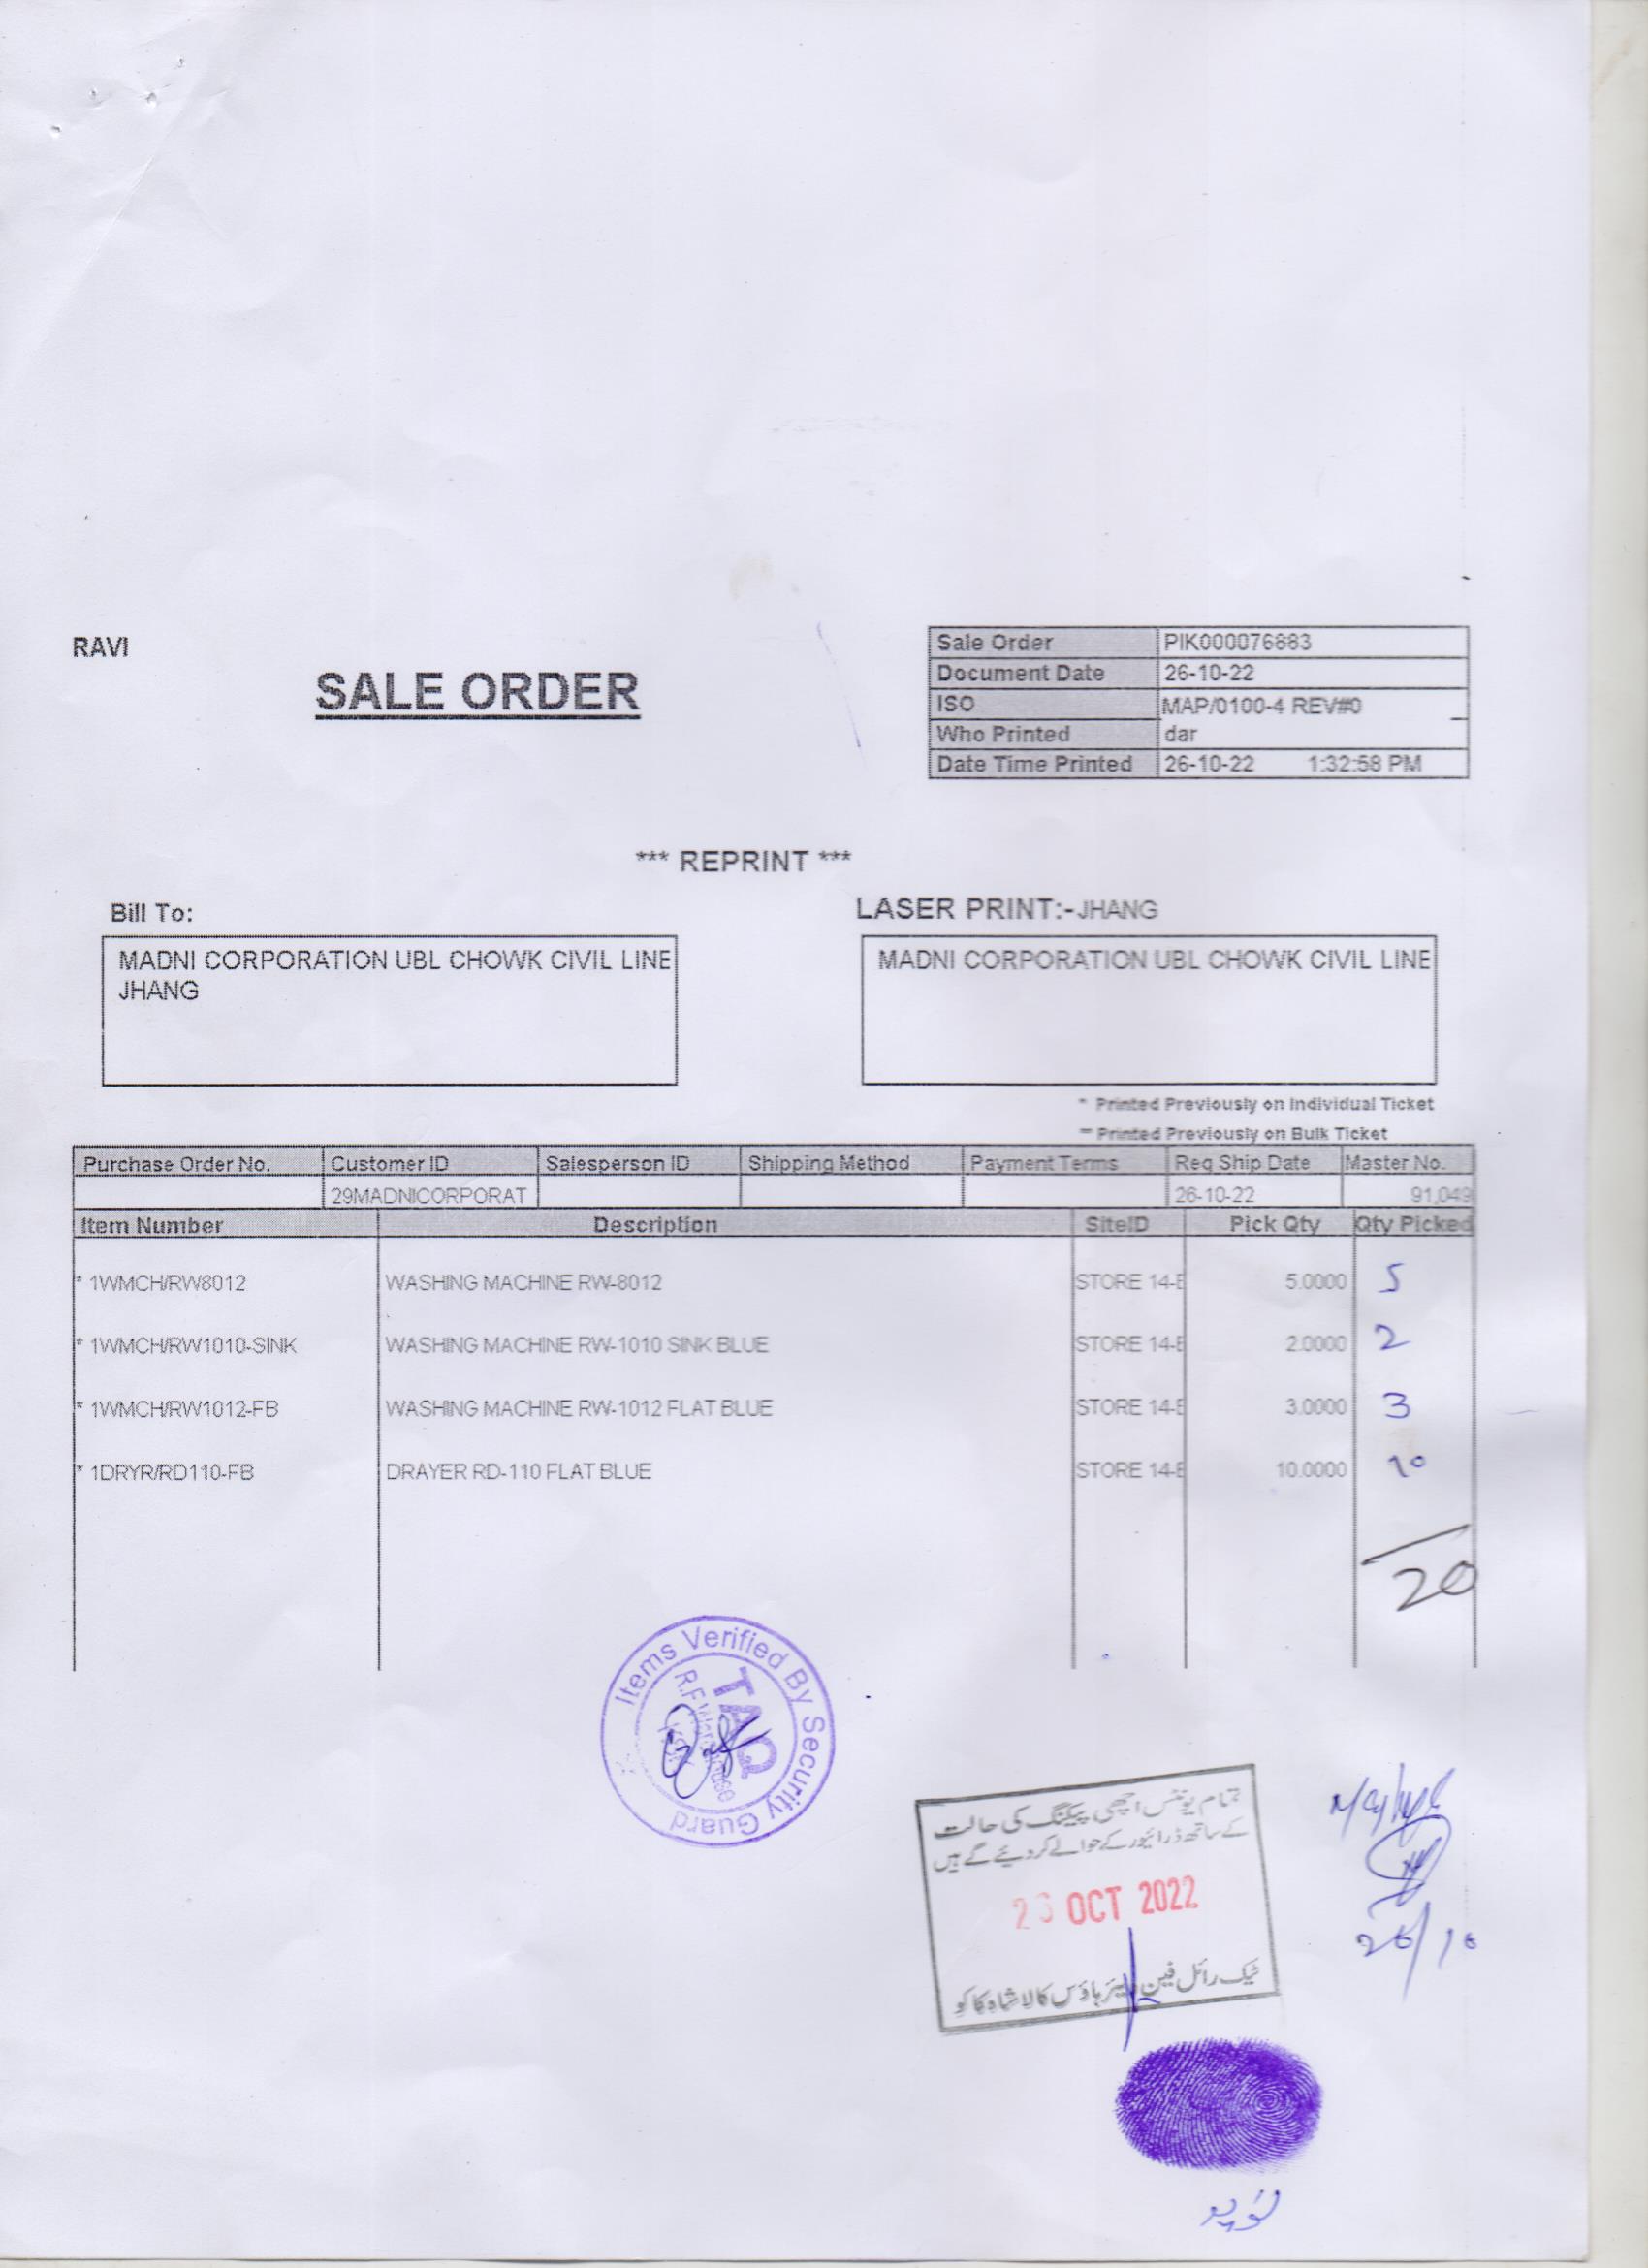 RAVI
SALE ORDER
Sale Order PIK000076883
Document Date 26-10-22
ISO MAP/0100-4 REV#0
Who Printed dar
Date Time Printed 26-10-22 1:32:58 PM
*** REPRINT ***
Bill To:
LASER PRINT:-JHANG
MADNI CORPORATION UBL CHOWK CIVIL LINE
JHANG
MADNI CORPORATION UBL CHOWK CIVIL LINE
* Printed Previously on Individual Ticket
** Printed Previously on Bulk Ticket
Purchase Order No. Customer ID Salesperson ID Shipping Method Payment Terms Req Ship Date Master No.
29MADNICORPORAT 26-10-22 91,049
Item Number Description SiteID Pick Qty Qty Picked
* 1WMCH/RW8012 WASHING MACHINE RW-8012 STORE 14-E 5.0000 5
* 1WMCH/RW1010-SINK WASHING MACHINE RW-1010 SINK BLUE STORE 14-E 2.0000 2
* 1WMCH/RW1012-FB WASHING MACHINE RW-1012 FLAT BLUE STORE 14-E 3.0000 3
* 1DRYR/RD110-FB DRAYER RD-110 FLAT BLUE STORE 14-E 10.0000 10
20
Items Verified By Security Guard
TAQ
R.F Warehouse
KSK
تمام یونٹس اچھی پیکنگ کی حالت
کے ساتھ ڈرائیور کے حوالے کر دیئے گئے ہیں
OCT 2022
ٹیک رائل فین ویئر ہاؤس کالا شاہ کاکو
26/10